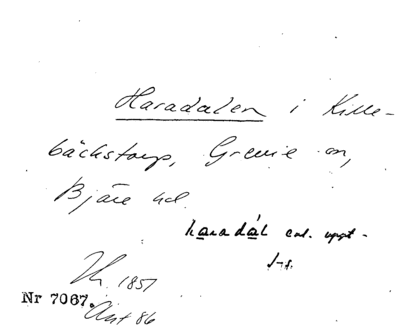 Haradalen i Kille-
bäckstorp, Grevie sn,
Bjäre hd.
haradál enl. uppt -
1857
Nr 7067. Ant 86